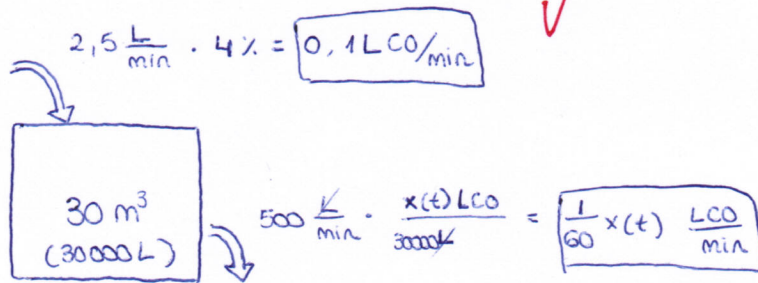 2,5 L/min · 4% = 0,1 L CO/min
30 m³
(30000 L)
500 L/min · x(t) LCO/30000L = 1/60 x(t) LCO/min